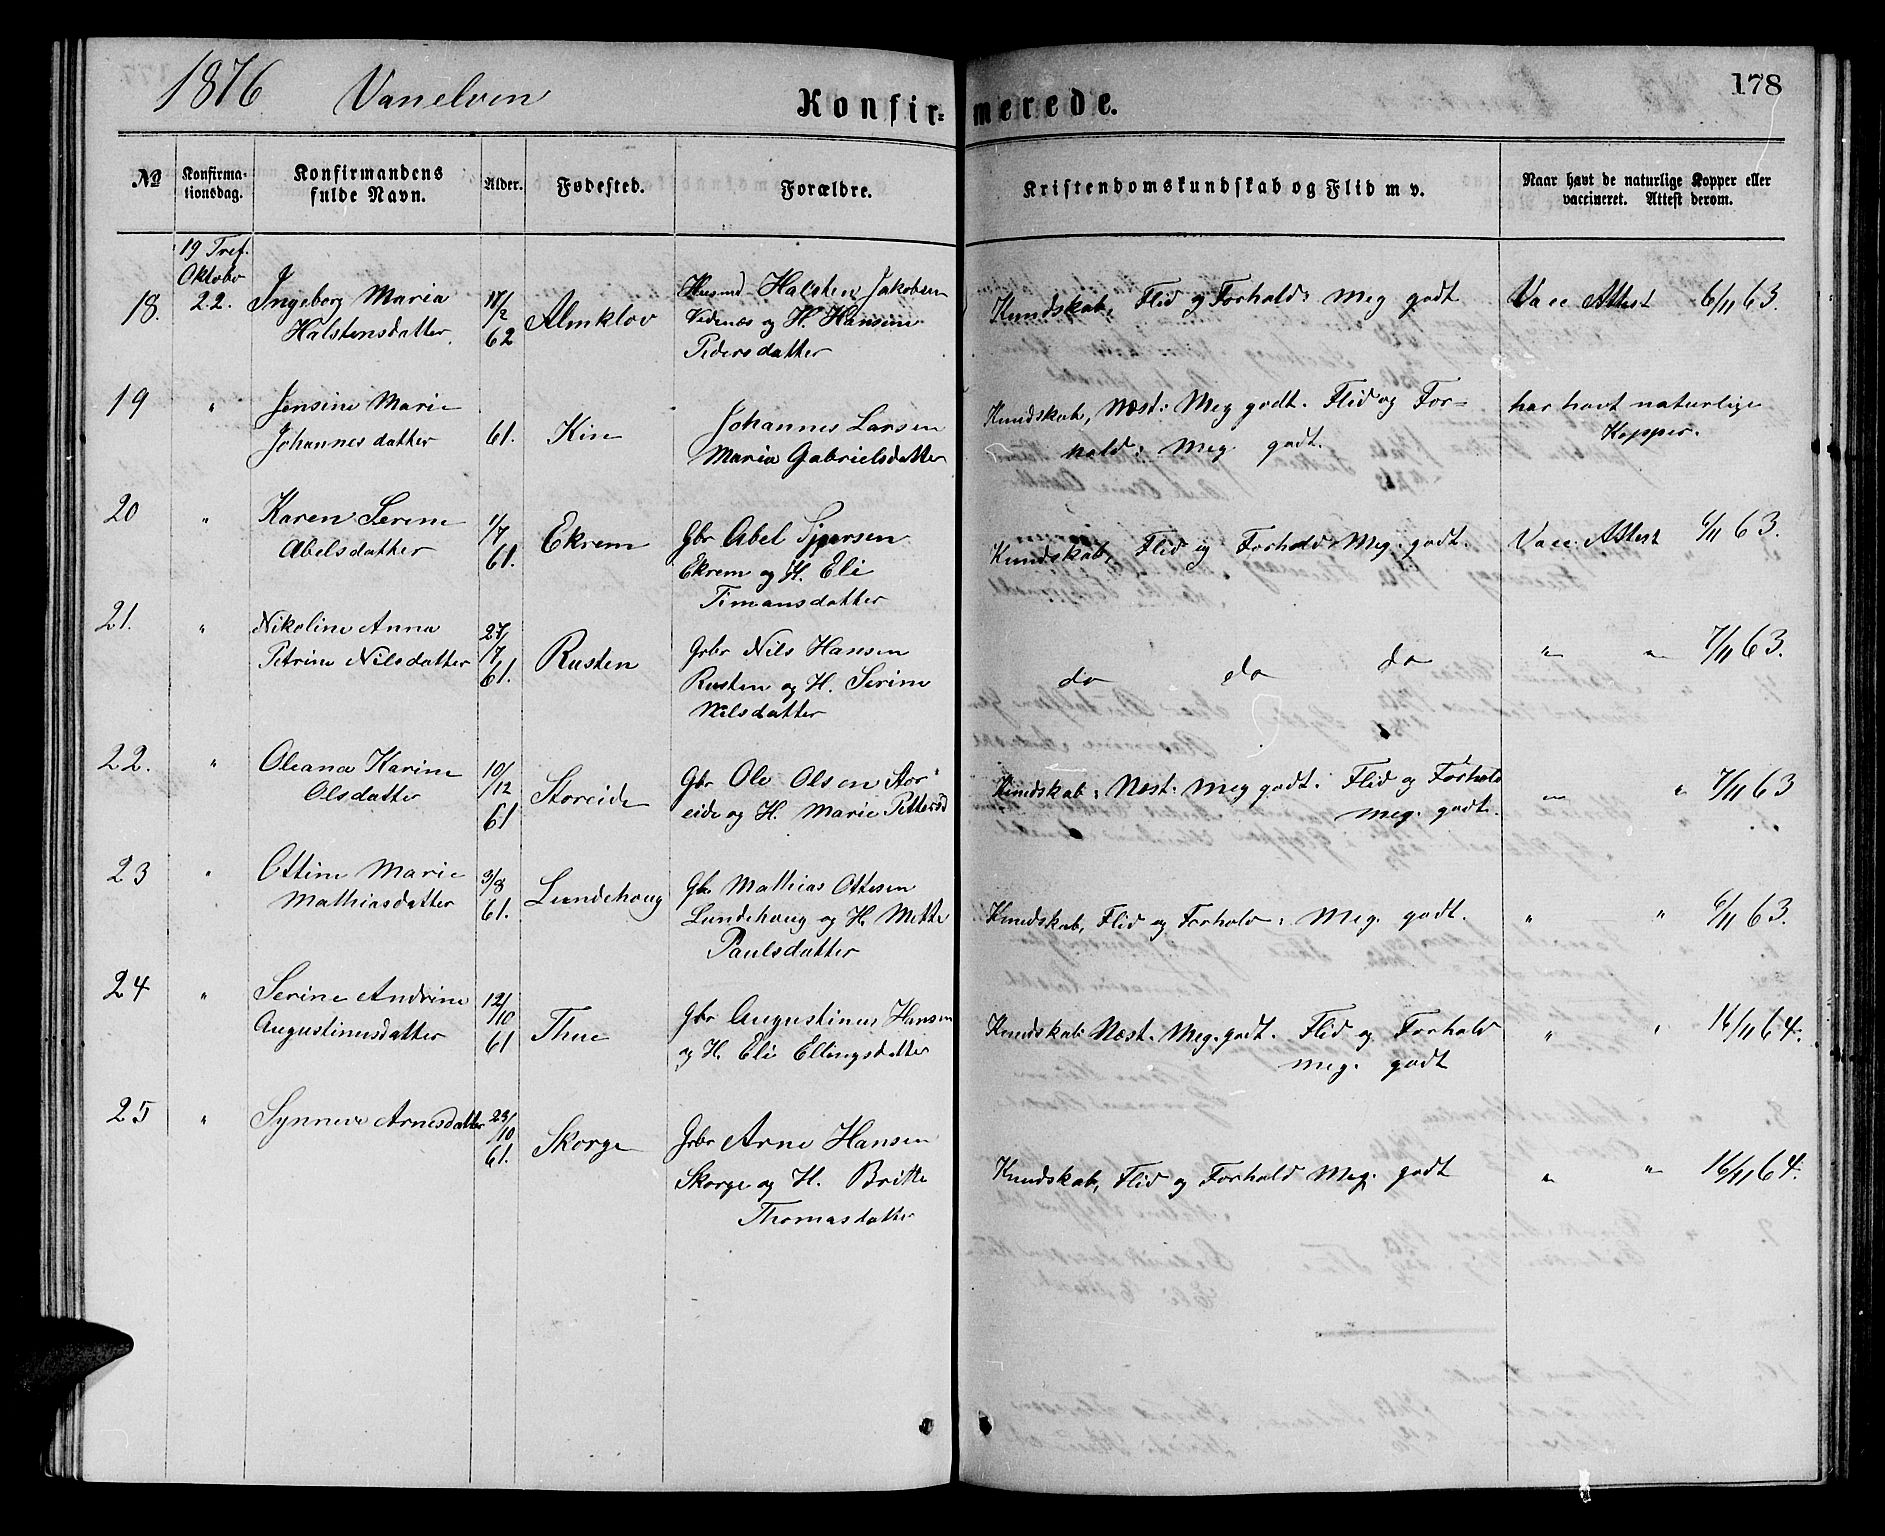 1876 Vanelven
Konfirmerede.
178
No
Konfirmationsdag.
Konfirmandens fulde Navn.
Alder.
Fødested.
Forældre.
Kristendomskundskab og Flid m v.
Naar havt de naturlige Kopper eller vaccineret. Attest derom.
19 Tref.
Oktober
18. 22. Ingeborg Maria Halstensdatter 17/2 62 Almklov
Husmd Halsten Jakobsen
Videnæs og H. Hansine
Pedersdatter
Kundskab, Flid og Forhold: Meg godt
Vacc Attest 6/11 63.
19 " Jensine Marie Johannesdatter 61. Kin
Johannes Larsen
Maria Gabrielsdatter
Kundskab, Næst. Meg godt. Flid og For-
hold: Meg godt.
har havt naturlige
Kopper.
20 " Karen Serine Abelsdatter 1/7 61. Ekrem
Gbr Abel
Ekrem og H. Eli
Timansdatter
Kundskab, Flid og Forhold Meg. godt.
Vacc. Attest 6/11 63.
21. " Nikoline Anna Petrine Nilsdatter 27/7 61. Rusten
Gbr Nils Hansen
Rusten og H. Serine
Nilsdatter
do do do
" " 7/11 63.
22. " Oleana Karine Olsdatter 10/12 61 Storeide
Gbr Ole Olsen Stor-
eide og H. Marie Pettersd
Kundskab: Næst. Meg godt. Flid og Forhold
meg. godt.
" " 7/11 63
23 " Ottine Marie Mathiasdatter 3/8 61. Lundehoug
Gbr Mathias Ottesen
Lundehoug og H. Mette
Paulsdatter
Kundskab, Flid og Forhold: Meg. godt.
" " 6/11 63.
24 " Serine Andrine Augustinusdatter 12/10 61 Thue
Gbr Augustinus Hansen
og H. Eli Ellingsdatter
Kundskab: Næst. Meg. godt. Flid og Forhold
meg. godt
" " 16/11 64.
25 " Synneve Arnesdatter 23/10 61. Skorge
Gbr Arne Hansen
Skorge og H. Britte
Thomasdatter
Kundskab, Flid og Forhold Meg. godt
" " 16/11 64.